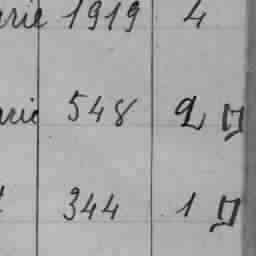 arie 1919 4
arie 548 2
344 1